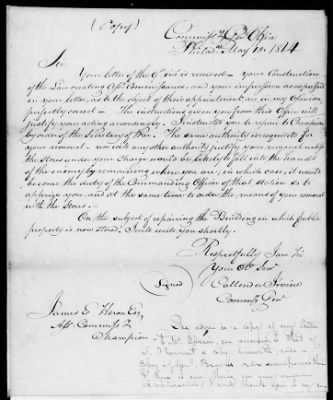 (Copy)
Commissy Gen Office
Philada May 18. 1814
Sir,
Your letter of the 9th ins is received — your Construction
of the Law creating Asst Commissaries, and your inferences as expressed
in your letter, as to the object of their appointment are in my opinion
perfectly correct — The instructions given you from this Office will
justify your acting accordingly. I instructed you to repair to Champlain
by order of the Secretary of War. The same authority is requisite for
your removal — nor will any other authority justify your removal unless
the Stores under your Charge would be likely to fall into the hands
of the enemy by remaining where you are; in which case, it would
become the duty of the Commanding Officer of that station to
apprize you and at the same time to order the means of your removal
with the Stores.
On the subject of repairing the Buildings in which public
property is now stored, I will write you shortly.
Respectfully I am Sir
Your Obt Servt
Signed
Callender Irvine
Commissy Genl
James E Heron Esq
Asst Commissy
Champlain
The above is a copy of my letter
to Mr. Heron, in answer to that of